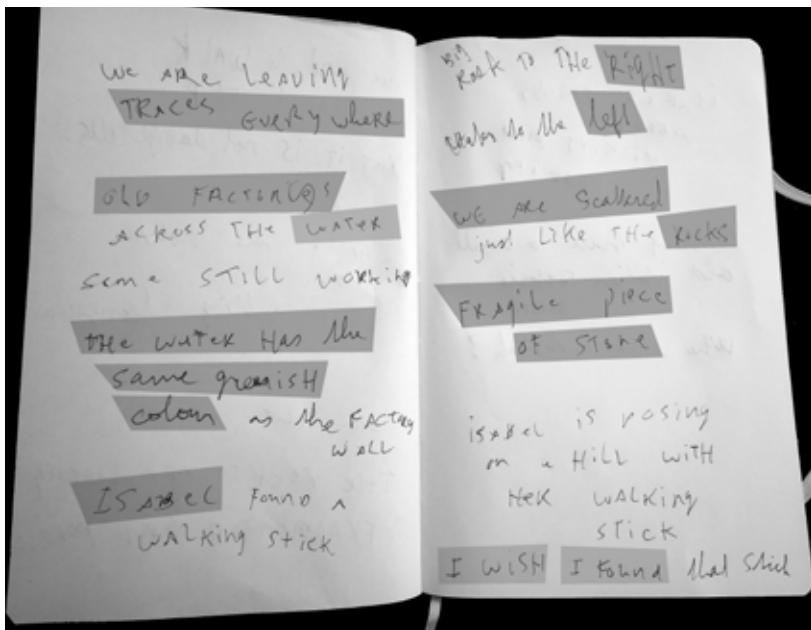 WE ARE LEAVING
TRACES EVERYWHERE
OLD FACTORIES
ACROSS THE WATER
some STILL WORKING
THE WATER HAS the
same greenish
colour as the FACTORY
WALL
ISABEL FOUND A
WALKING STICK
BIG
ROCK TO THE RIGHT
to the left
WE ARE Scattered
just LIKE THE ROCKS
FRAGILE piece
OF STONE
ISABEL is posing
on a HILL WITH
HER WALKING
STICK
I WISH I found that stick